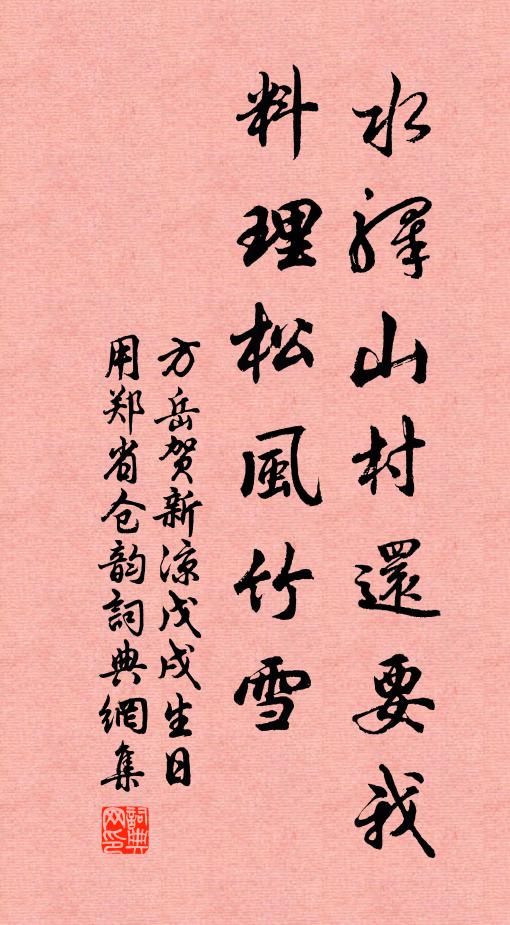 水驛山村還要我
料理松風竹雪
方岳贺新凉戊戌生日
用郑省仓韵詞典網集
詞典网印